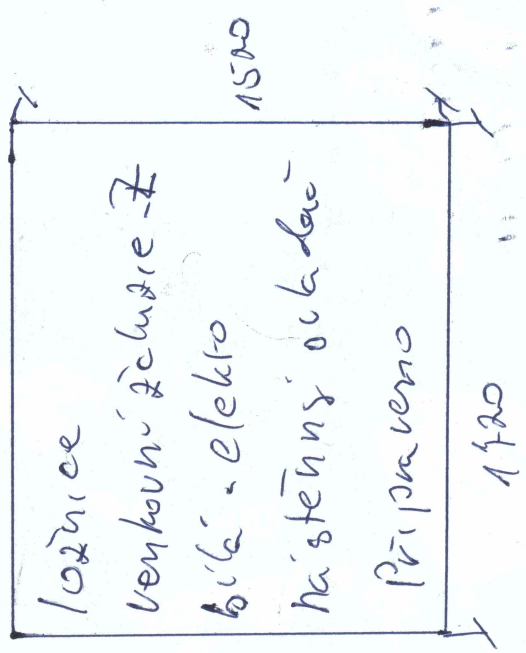 ložnice
venkovní žaluzie-Z
bílá - elektro
nástěnný ovladač
Připraveno
1500
1720